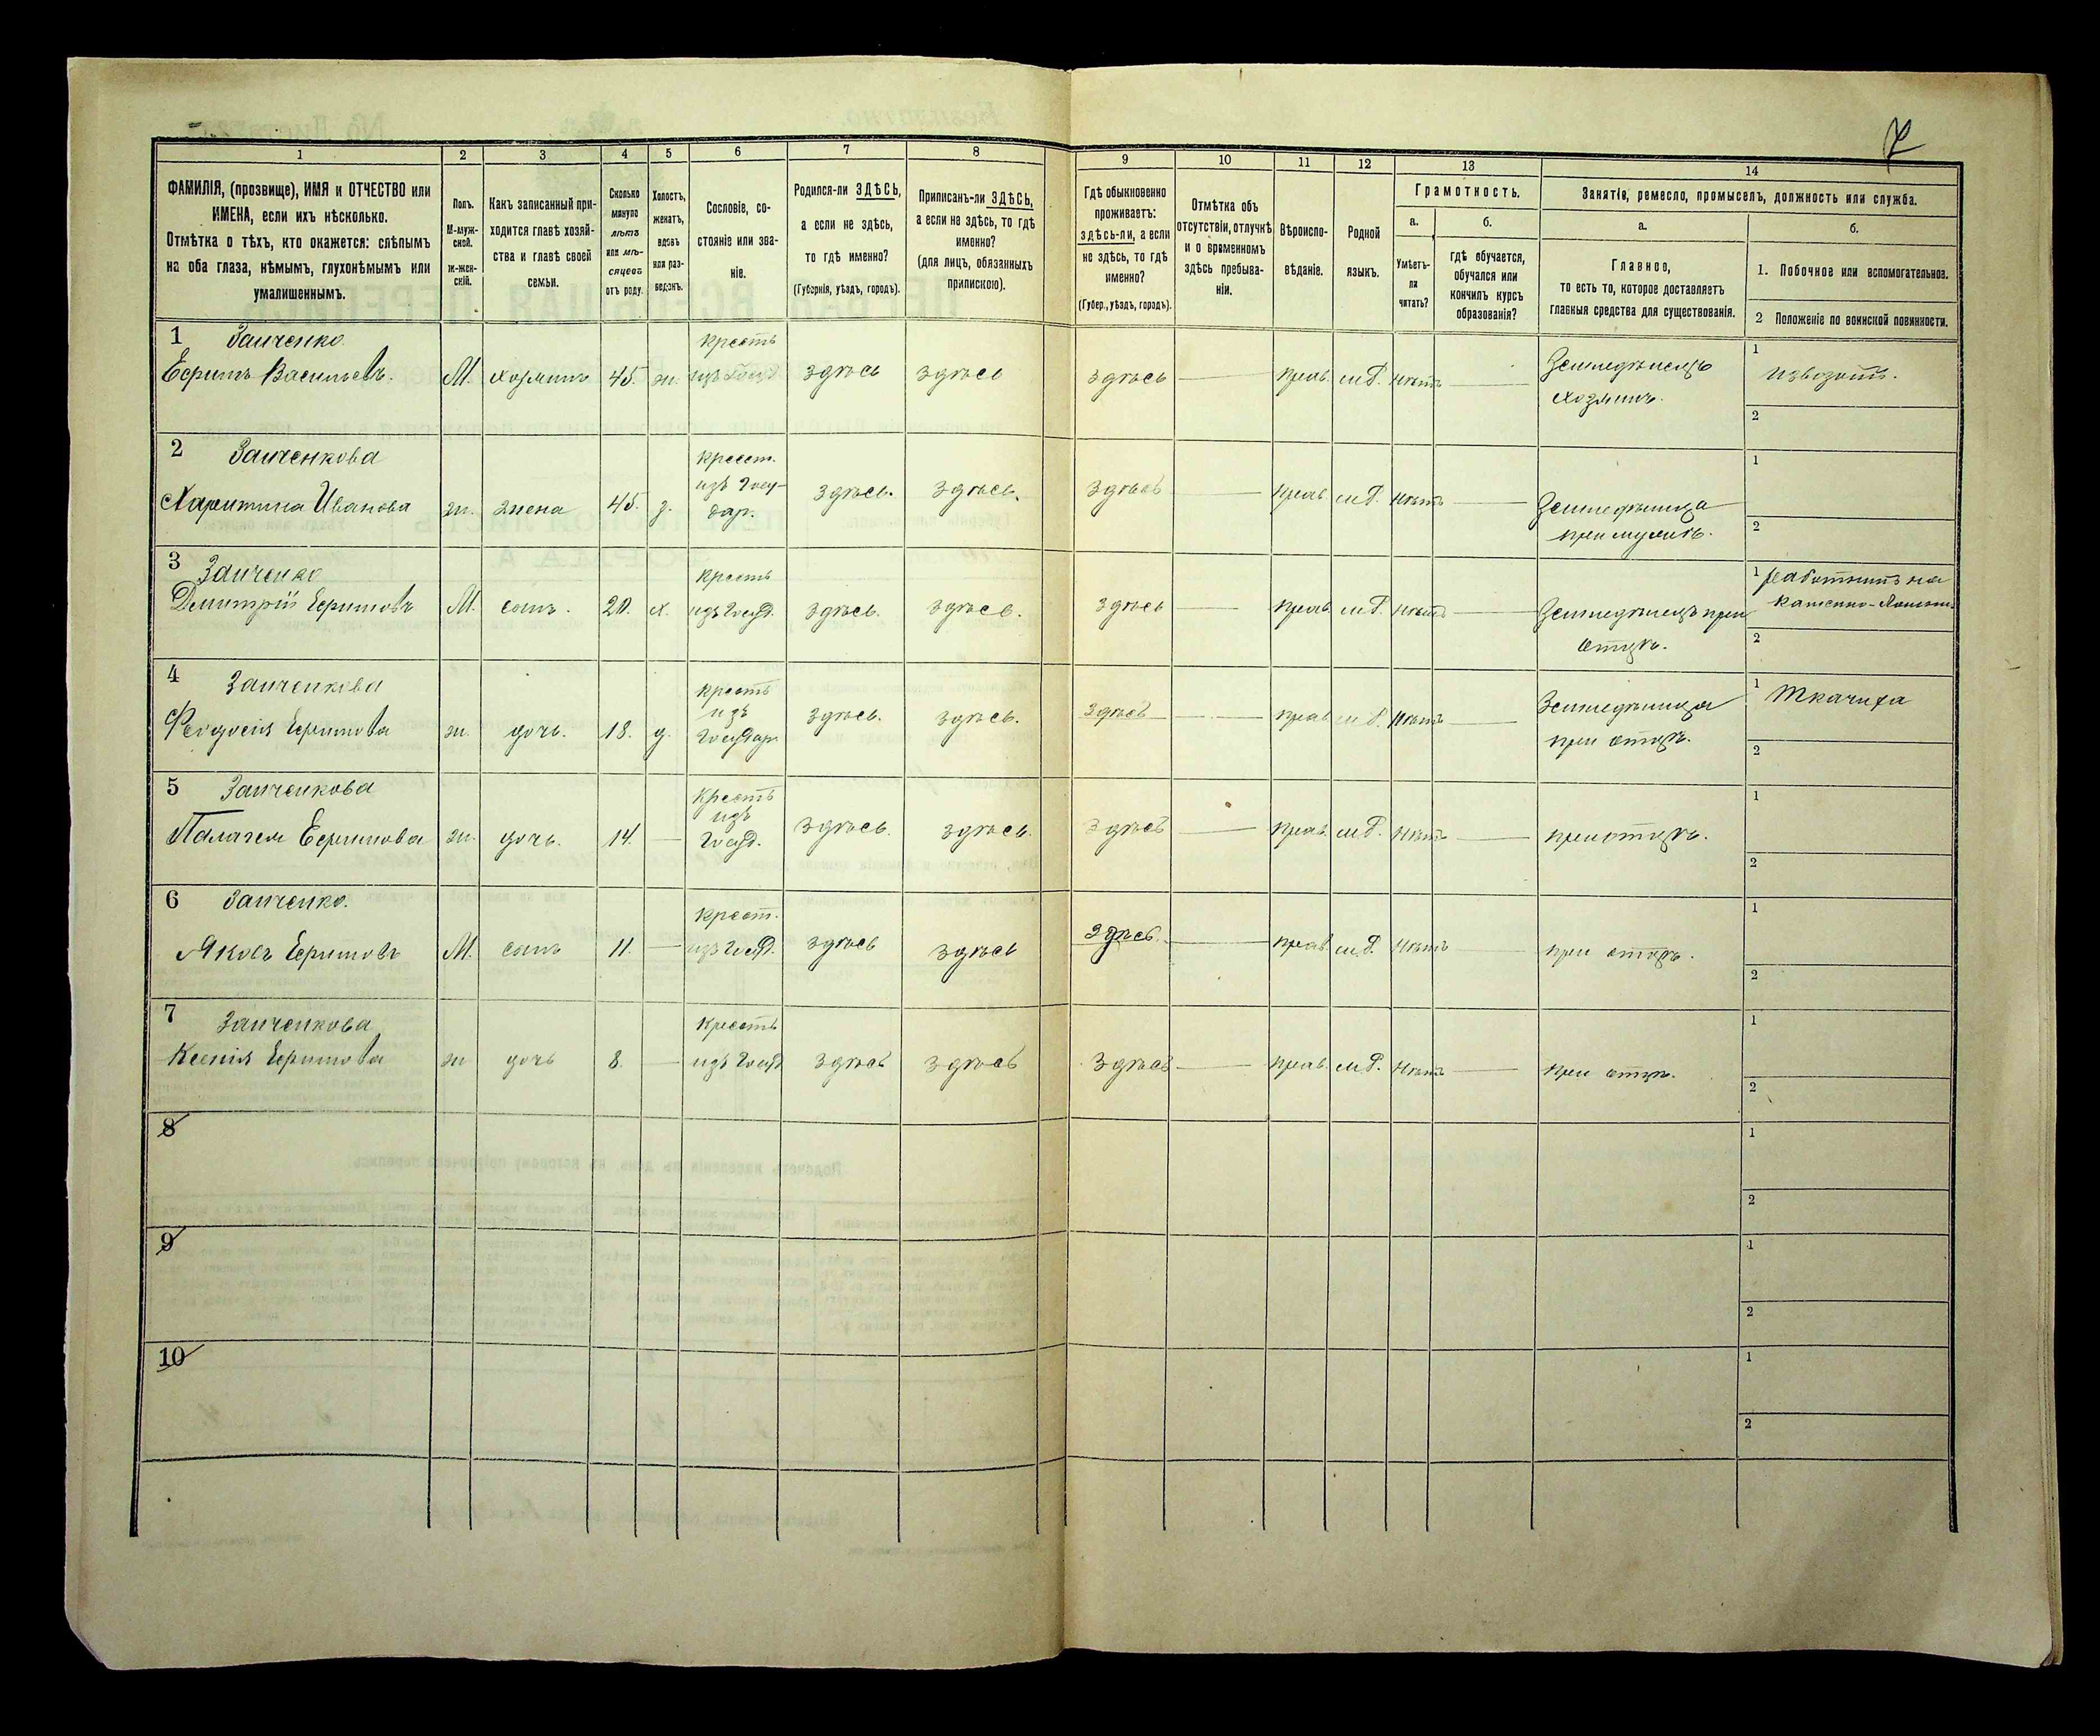 1 2 3 4 5 6 7 8 9 10 11 12 13 14
ФАМИЛІЯ, (прозвище), ИМЯ и ОТЧЕСТВО или
ИМЕНА, если ихъ нѣсколько.
Отмѣтка о тѣхъ, кто окажется: слѣпымъ
на оба глаза, нѣмымъ, глухонѣмымъ или
умалишеннымъ.
Полъ.
М-муж-
ской.
ж-жен-
скій.
Какъ записанный при-
ходится главѣ хозяй-
ства и главѣ своей
семьи.
Сколько
минуло
лѣтъ
или мѣ-
сяцевъ
отъ роду.
Холостъ,
женатъ,
вдовъ
или раз-
веденъ.
Сословіе, со-
стояніе или зва-
ніе.
Родился-ли ЗДѢСЬ,
а если не здѣсь,
то гдѣ именно?
(Губернія, уѣздъ, городъ).
Приписанъ-ли ЗДѢСЬ,
а если не здѣсь, то гдѣ
именно?
(для лицъ, обязанныхъ
припискою).
Гдѣ обыкновенно
проживаетъ:
здѣсь-ли, а если
не здѣсь, то гдѣ
именно?
(Губер., уѣздъ, городъ).
Отмѣтка объ
отсутствіи, отлучкѣ
и о временномъ
здѣсь пребыва-
ніи.
Вѣроиспо-
вѣданіе.
Родной
языкъ.
Грамотность.
а.
Умѣетъ-
ли
читать?
б.
Гдѣ обучается,
обучался или
кончилъ курсъ
образованія?
Занятія, ремесло, промыселъ, должность или служба.
а.
Главное,
то есть то, которое доставляетъ
главныя средства для существованія.
б.
1. Побочное или вспомогательное.
2 Положеніе по воинской повинности.
1 Заиченко Крестъ 1
Ефримъ Васильевъ. М. хозяинъ 45. ж. изъ здѣсь здѣсь здѣсь прав. м.р. нѣтъ Земледѣлецъ извозотъ.
хозяинъ. 2
2 Заиченкова Крест. 1
Харитина Ивановa ж. жена 45. з. изъ Госу- здѣсь. здѣсь. здѣсь прав м.р. нѣтъ Земледѣлица
дар. при мужѣ. 2
3 Заиченко Крестъ 1 работникъ на
Дмитрій Ефримовъ М. сынъ. 20. х. изъ Госуд. здѣсь. здѣсь. здѣсь прав м.р. нѣтъ Земледѣлецъ при
отцѣ. 2
4 Заиченкова Крестъ 1 Ткачиха
Феодосія Ефримова ж. дочь. 18. д. изъ здѣсь. здѣсь. здѣсь прав м.р. нѣтъ Земледѣлица
Государ. при отцѣ. 2
5 Заиченкова Крестъ 1
Палагея Ефримова ж. дочь. 14. изъ здѣсь. здѣсь. здѣсь прав. м.р. нѣтъ при отцѣ.
Госуд. 2
6 Заиченко. Крест. 1
Яковъ Ефримовъ М. сынъ 11. изъ Госуд. здѣсь здѣсь здѣсь. прав м.р. нѣтъ при отцѣ. 2
7 Заиченкова Крестъ 1
Ксенія Ефримова ж дочь 8. изъ Госуд здѣсь здѣсь здѣсь прав. м.р. нѣтъ при отцѣ. 2
8 1
2
9 1
2
10 1
2